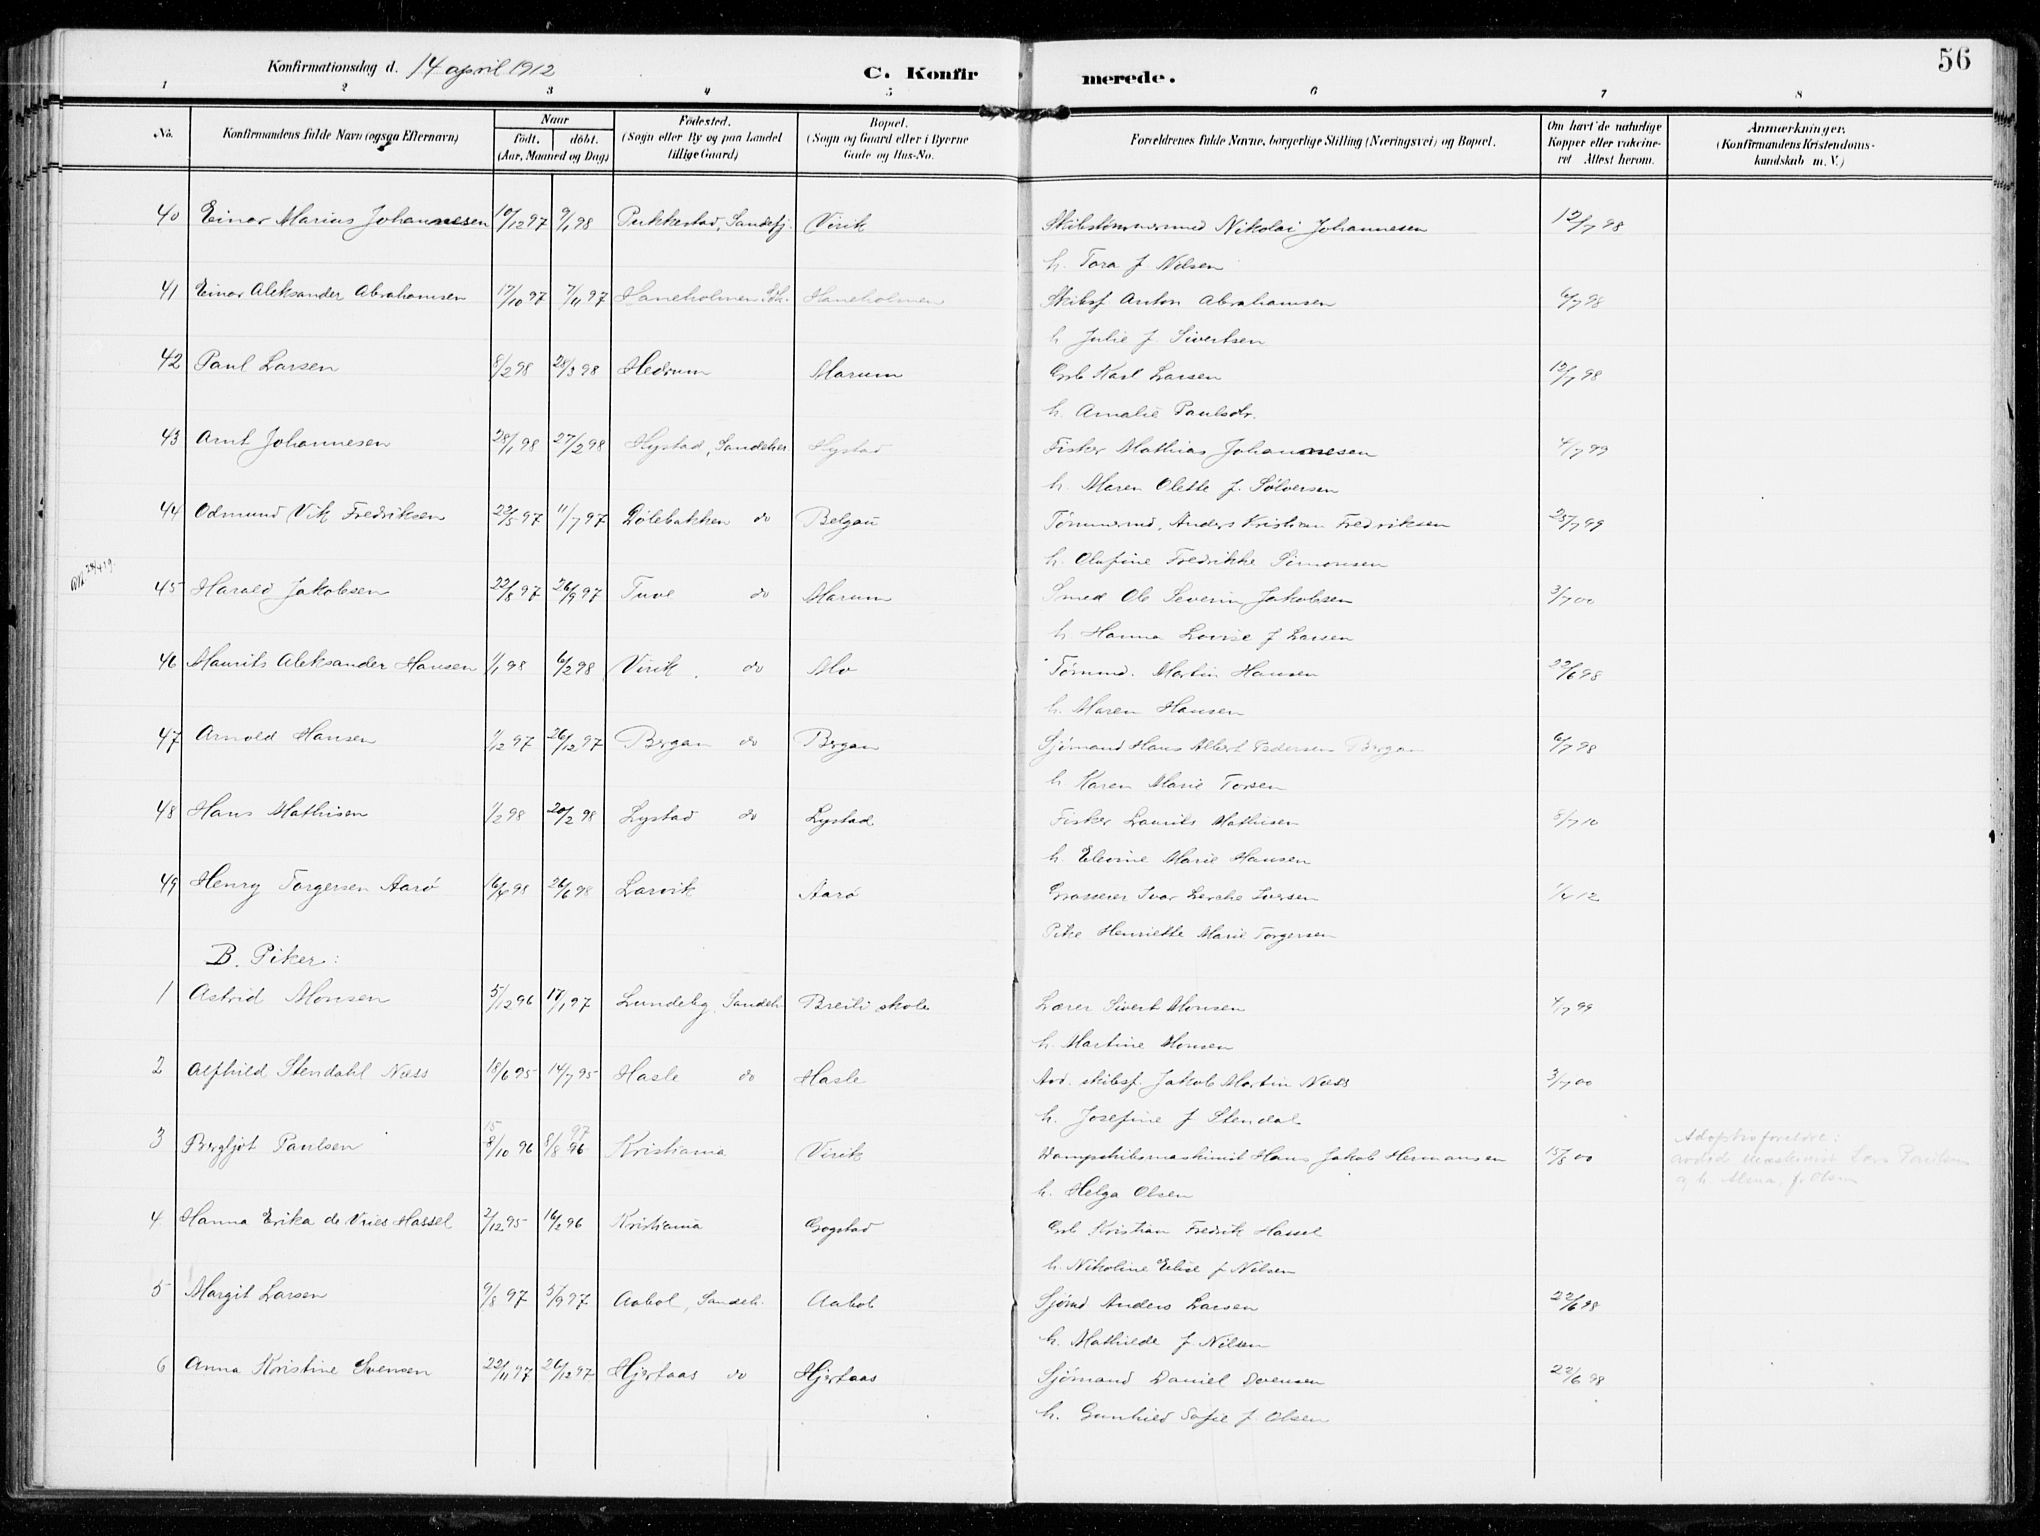 56
Konfirmationsdag d. 14 april 1912 C. Konfirmerede.
1 2 3 4 5 6 7 8
No. Konfirmandens fulde Navn (ogsaa Efternavn) Naar født. døbt. (Aar, Maaned og Dag) Fødested. (Sogn eller By og paa Landet tillige Gaard) Bopæl. (Sogn og Gaard eller i Byerne Gade og Hus-No. Forældrenes fulde Navne, borgerlige Stilling (Næringsvei) og Bopæl. Om havt de naturlige Kopper eller vaccineret Attest herom. Anmærkninger. (Konfirmandens Kristendomskundskab m. V.)
40 Einar Marius Johannesen 10/12 97 9/1 98 Pukkestad, Sandefj. Virik Skibstømmermed Nikolai Johannesen 12/7 98
h. Tora f. Nilsen
41 Einar Aleksander Abrahamsen 17/10 97 7/11 97 Haneholmen Haneholmen Skibsf. Anton Abrahamsen 6/7 98
h Julie f. Sivertsen
42 Paul Larsen 8/2 98 28/3 98 Hedrum Marum Grb Karl Larsen 12/7 98
h. Amalie Paulsdr.
43 Arnt Johannesen 28/1 98 27/2 98 Hystad, Sandeher Hystad Fisker Mathias Johannesen 4/7 99
h. Maren Olette f. Sølversen
44 Odmund Vik Fredriksen 22/5 97 11/7 97 Dølebakken do Belgau Tømmermd. Anders Kristian Fredriksen 25/7 99
h. Olufine Fredrikke Simonsen
45 Harald Jakobsen 22/8 97 26/9 97 Tuve do Marum Smed Ole Severin Jakobsen 3/7 00
h. Hanna Lovise f Larsen
46 Maurits Aleksander Hansen 1/1 98 6/2 98 Virik do Mo Tømmd. Martin Hansen 22/6 98
h. Maren Hansen
47 Arnold Hansen 1/12 97 26/12 97 Brgan do Brgan Sjømand Hans Albert Pedersen Bergan 6/7 98
h. Karen Marie Torsen
48 Hans Mathisen 1/2 98 20/2 98 Lystad do Lystad Fisker Laurits Mathisen 8/7 10
h. Elevine Marie Hansen
49 Henry Torgersen Aarø 16/4 98 26/6 98 Larvik Aarø Grosserer Ivar Lerche Iversen 1/4 12
Pike Henriette Marie Torgersen
B. Piker:
1 Astrid Monsen 5/12 96 17/1 97 Lundeby, Sandeh Breili skole Lærer Sivert Monsen 4/7 99
h. Martine Monsen
2 Alfhild Stendahl Næss 18/6 95 14/7 95 Hasle do Hasle Avd. skibsf. Jakob Martin Næss 3/7 00
h. Josefine f Stendal
3 Bergljot Paulsen 15/10 96 8/8 97 Kristiania Virik Dampskibsmaskinist Hans Jakob Hermansen 15/8 00 Adoptivforeldre:
h. Helga Olsen
4 Hanna Erika de Vries Hassel 2/12 95 16/2 96 Kristiania Gogstad Grb Kristian Fredrik Hassel
h. Nikoline Elise f Nilsen
5 Margit Larsen 9/8 97 5/9 97 Aabol, Sandeh. Aabol Sjømd Anders Larsen 22/6 98
h. Mathilde f Nilsen
6 Anna Kristine Svensen 22/11 97 26/12 97 Hjertaas do Hjertaas Sjømand Daniel Svensen 22/6 98
h. Gunhild Sofie f. Olsen